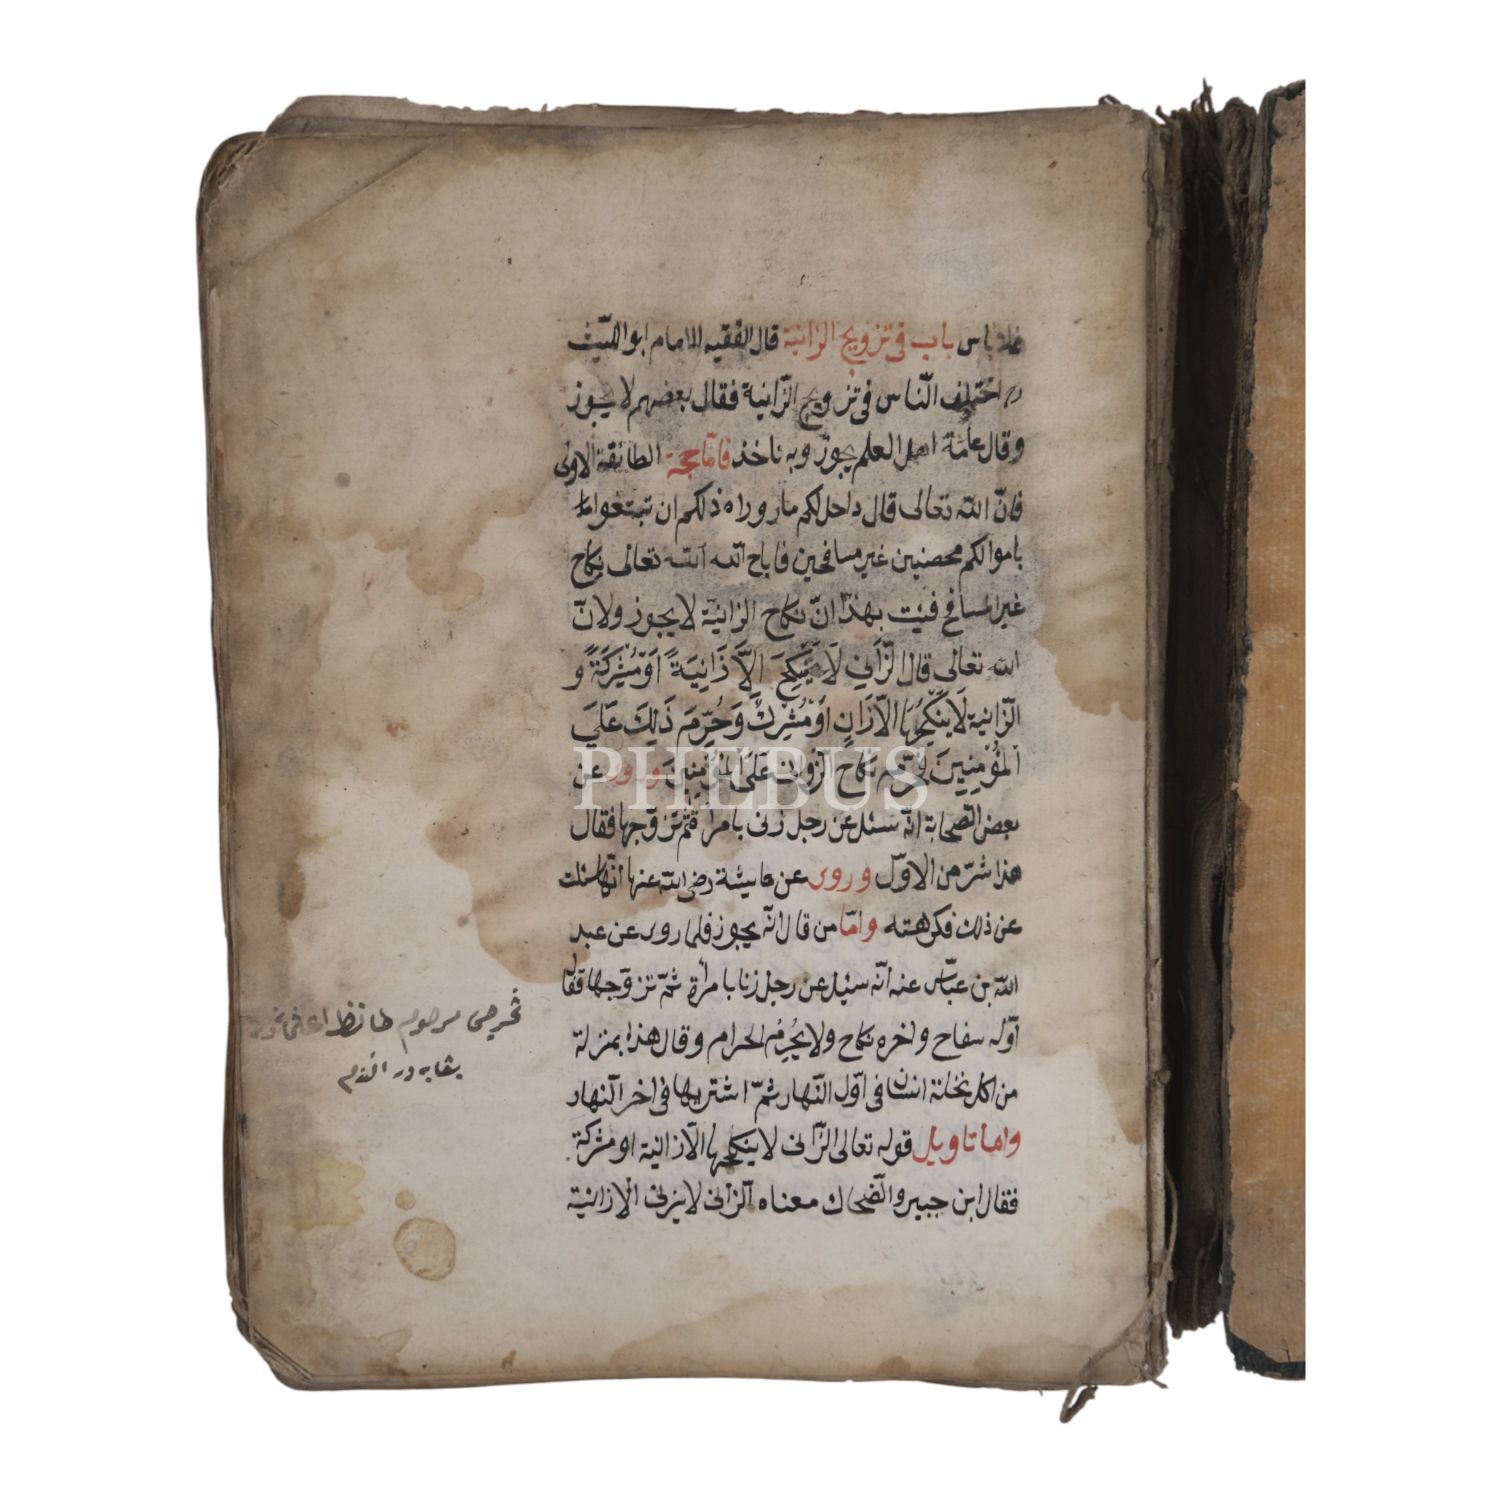 فلا باس باب فى تزويج الزانية قال الفقيه الامام ابو الليث
اختلف النّاس فى تزويج الزّانية فقال بعضهم لا يجوز
وقال عامّة اهل العلم يجوز وبه ناخذ فامّا حجة الطائفة الاولى
فانّ اللّه تعالى قال واحل لكم ما وراء ذلكم ان تبتغوا
باموالكم محصنين غير مسافحين فاباح اللّه تعالى نكاح
غير المسافح بهذا انّ نكاح الزانيّة لا يجوز ولانّ
اللّه تعالى قال الزّانِي لَا يَنْكِحُ اِلَّا زَانِيَةً اَوْ مُشْرِكَةً و
الزّانية لَا يَنْكِحُهَا الّا زَانٍ اَوْ مُشْرِكٌ وَحُرِّمَ ذَلِكَ عَلَي
الْمُؤْمِنِينَ نكاح الزوانى عَلَى الْمُؤْمِنِينَ وروى عن
بعض الصّحابة انّه سئل عن رجل زنى بامراة ثمّ تزوّجها فقال
هذا شرّ من الاوّل وروى عن عايشة رضى اللّه عنها انّها سئلت
عن ذلك فكرهته وامّا من قال انّه يجوز فلما روى عن عبد
اللّه بن عبّاس عنه انّه سئل عن رجل زنا بامراة ثمّ تزوّجها فقال
اوّله سفاح واخره نكاح ولا يُحرِمُ الحرام وقال هذا بمنزلة
من اكل نخلة انسان فى اوّل النّهار ثمّ اشتريها فى اخر النّهار
واما تاويل قوله تعالى الزّانى لا ينكحها الّا زانية او مشركة
فقال ابن جبير والضّحاك معناه الزّانى لا يزنى الّا زانية
PHEBUS